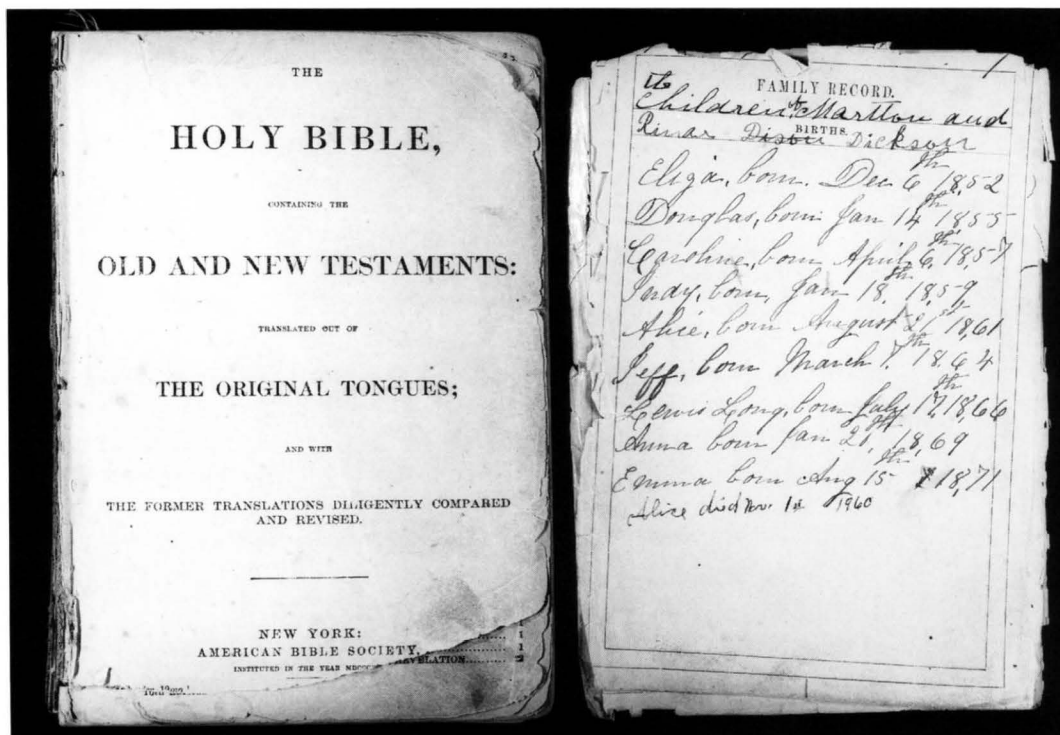 THE
HOLY BIBLE,
CONTAINING THE
OLD AND NEW TESTAMENTS:
TRANSLATED OUT OF
THE ORIGINAL TONGUES;
AND WITH
THE FORMER TRANSLATIONS DILIGENTLY COMPARED
AND REVISED.
NEW YORK:
AMERICAN BIBLE SOCIETY,
INSTITUTED IN THE YEAR
1
1
REVELATION
FAMILY RECORD.
Children of Martton and
BIRTHS.
Rinar Dison Dickson
Eliza, born. Dec 6th 1852
Douglas, born Jan 14th 1855
Caroline, born April 6th, 1857
Judy, born, Jan 18th, 1859
Alice, born August 21st, 1861
Jeff, born March 7th, 1864
Lewis Long, born July 17th, 1866
Anna born Jan 21st, 1869
Emma born Aug 15th 1871
Alice died Nov. 1st 1960